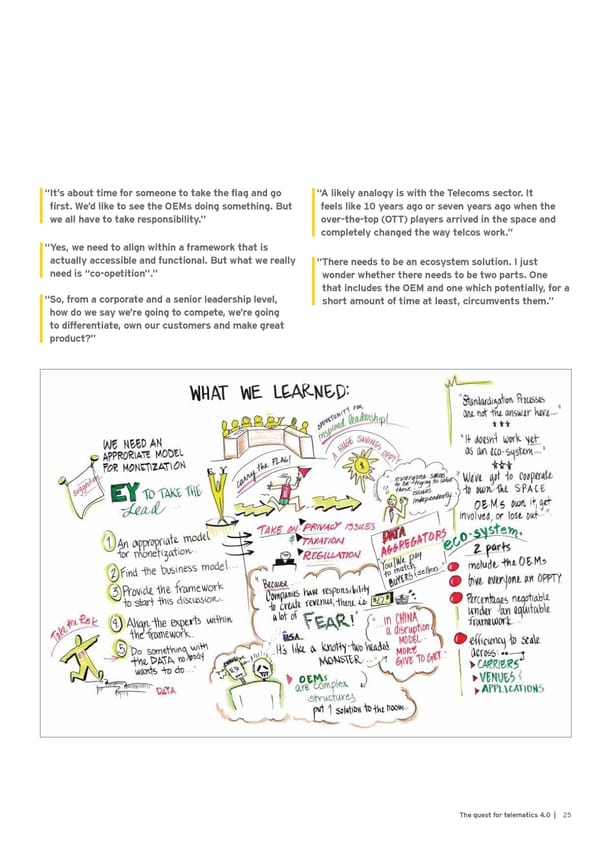 “It’s about time for someone to take the flag and go
first. We’d like to see the OEMs doing something. But
we all have to take responsibility.”
“Yes, we need to align within a framework that is
actually accessible and functional. But what we really
need is “co-opetition”.”
“So, from a corporate and a senior leadership level,
how do we say we’re going to compete, we’re going
to differentiate, own our customers and make great
product?”
“A likely analogy is with the Telecoms sector. It
feels like 10 years ago or seven years ago when the
over-the-top (OTT) players arrived in the space and
completely changed the way telcos work.”
“There needs to be an ecosystem solution. I just
wonder whether there needs to be two parts. One
that includes the OEM and one which potentially, for a
short amount of time at least, circumvents them.”
WHAT WE LEARNED:
OPPORTUNITY FOR
inspired leadership!
A HUGE SAVINGS OPPTY!
WE NEED AN
APPROPRIATE MODEL
FOR MONETIZATION
suggestion
EY TO TAKE THE
Lead...
carry the FLAG!
everyone seems
to be trying to solve
these issues
independently
"Standardization Processes
are not the answer here..."
"It doesn't work yet
as an eco-system..."
"We've got to cooperate
to own the SPACE
OEMs own it, get
involved, or lose out..."
① An appropriate model
for monetization..
② Find the business model...
③ Provide the framework
to start this discussion.
④ Align the experts within
the framework.
⑤ Do something with
the DATA nobody
wants to do..."
DATA
Take the Risk
TAKE ON PRIVACY ISSUES
TAXATION
REGULATION
"Because
Companies have responsibility
to create revenue, there is
a lot of FEAR!"
USA..
"It's like a knotty-two headed
MONSTER...
OEMs
are complex
structures
put 1 solution to the room..
DATA
AGGREGATORS
You/We pay
to match
BUYERS/sellers..
"...in CHINA
a disruption
MODEL..
MORE
GIVE TO GET.."
eco-system.
2 parts
include the OEMs
Give everyone an OPPTY.
Percentages negotiable
under an equitable
framework..
efficiency to scale
across:
CARRIERS
VENUES &
APPLICATIONS
The quest for telematics 4.0 | 25